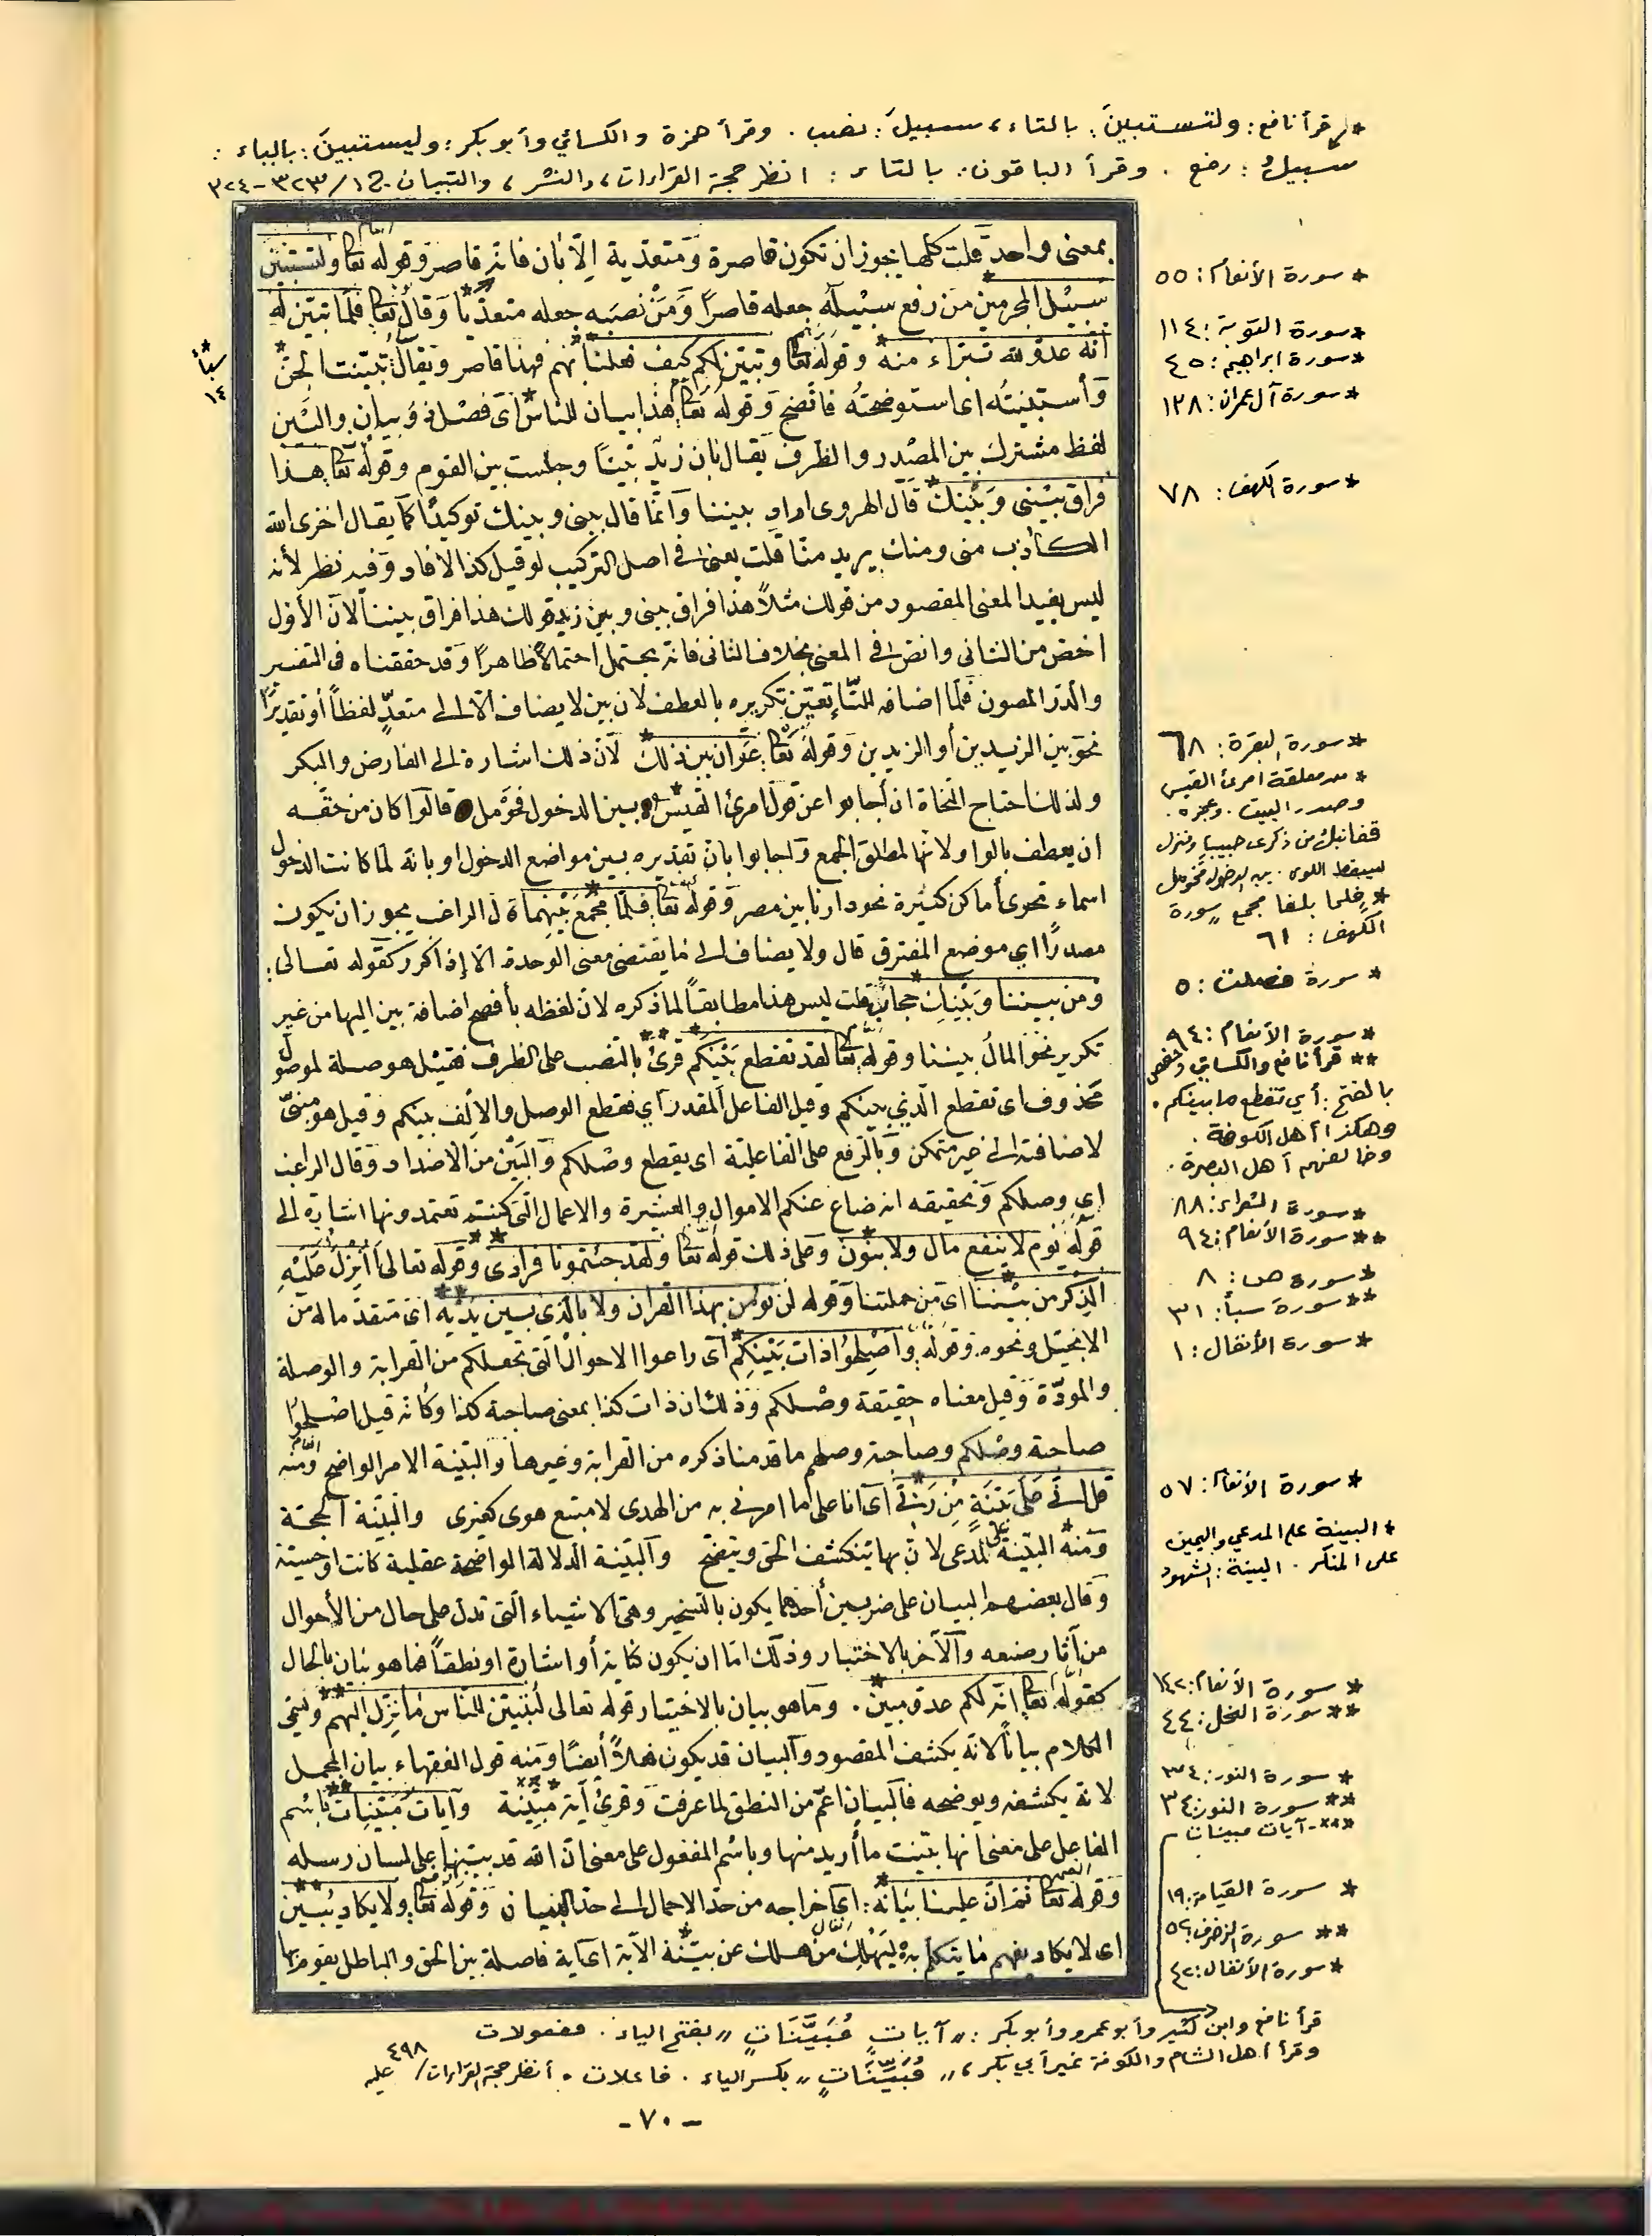 * قرأ نافع: ولتستبينَ: بالتاء، سبيلَ: نصب. وقرأ حمزة والكسائي وأبو بكر: وليستبينَ: بالياء:
سبيلُ: رفع. وقرأ الباقون: بالتاء: انظر حجة القراءات، والنشر، والتبيان ١/ ٣٢٣-٣٢٤
بمعنى واحد قلت كلها يجوز ان تكون قاصرة ومتعدية الّا بان فانه قاصر وقوله تعا ولتستبين
سبيل المجرمين من رفع سبيله جعله قاصرًا ومن نصبه جعله متعدّيًا وقال تعا فلمّا تبيّن له
انه عدو لله تبراء منه وقوله تعا وتبيّن لكم كيف فعلنا بهم فهذا قاصر ويقال تبيّنت الجنّ
وأستبنيتُه اى استوضحتُه فاتّضح وقوله تعا هذا بيان للناس اى فصل ذو بيان والبَين
لفظ مشترك بين المصدر والظرف يقال بان زيد بينًا وجلست بين القوم وقوله تعا هذا
فراق بيني وبينك قال الهروى اراد بيننا وانّما قال بينى وبينك توكيدًا كما يقال اخزى الله
الكاذب منى ومنك يريد منّا قلت يعنى فى اصل التركيب لو قيل كذا لافاد وفيه نظر لأنه
ليس يفيد المعنى المقصود من قولك مثلاً هذا فراق بينى وبين زيد قولك هذا فراق بيننا لانّ الأول
اخصّ من الثانى وانصّ فى المعنى بخلاف الثانى فانه يحتمل احتمالاً ظاهرًا وقد حققناه فى التفسير
والدر المصون فلمّا اضافه للتّاء تعيّن تكريره بالعطف لان بين لا يضاف الّا الى متعدّد لفظاً أو تقديرًا
نحو بين الزيدين أو الزيدين وقوله تعا عوان بين ذلك لأن ذلك اشارة الى الفارض والبكر
ولذلك احتاج النحاة ان أجابوا عن قول امرئ القيس بين الدخول فحومل قالوا كان من حقه
ان يعطف بالواو لانها لمطلق الجمع وأجابوا بانّ تقديره بين مواضع الدخول او بانه لمّا كانت الدخول
اسماء تحوى أماكن كثيرة نحو دارنا بين مصر وقوله تعا فلما مجمع بينهما قال الراغب يجوز ان يكون
مصدرًا اي موضع المفترق قال ولا يضاف الى ما يقتضى معنى الوحدة الا إذا كرر كقوله تعالى:
ومن بيننا وبينك حجاب قلت ليس هذا مطابقاً لما ذكره لان لفظه بأفصح اضافة بين اليها من غير
تكرير نحو المالُ بيننا وقوله تعا لقد تقطع بينكم قرئ بالنصب على الظرف فقيل هو صلة لموصول
محذوف اى تقطع الذي بينكم وقيل الفاعل المقدر اي تقطع الوصل والالف بينكم وقيل هو مبنىّ
لاضافته الى غير متمكن وبالرفع على الفاعلية اى يقطع وصلكم والبَيْن من الاضداد وقال الراغب
اى وصلكم وتحقيقه انه ضاع عنكم الاموال والعشيرة والاعمال التى كنتم تعتمدونها اشارة الى
قوله يوم لا ينفع مال ولا بنون وعلى ذلك قوله تعا ولقد جئتمونا فرادى وقوله تعالى أأنزل عليه
الذكر من بيننا اى من جملتنا وقوله لن نؤمن بهذا القران ولا بالذي بين يديه اى متقدما له من
الانجيل ونحوه وقوله وأصلحوا ذات بينكم أى راعوا الاحوال التى تجعلكم من القرابة والوصلة
والمودّة وقيل معناه حقيقة وصلكم وذلك ان ذات كذا بمعنى صاحبة كذا وكأنه قيل اصلحوا
صاحبة وصلكم وصاحبة وصلهم ما قدمنا ذكره من القرابة وغيرها والبيّنة الامر الواضح ومنه
قل انى على بيّنة من ربّى أى انا على ما امرنى به من الهدى لا متبع هوى كغيرى والبيّنة الحجة
ومنه البيّنة على المدعى لان بها ينكشف الحق ويتضح والبيّنة الدلالة الواضحة عقلية كانت او حسيّة
وقال بعضهم البيان على ضربين أحدهما يكون بالتسخير وهى الاشياء التى تدل على حال من الأحوال
من آثار صنعه والآخر بالاختبار وذلك امّا ان يكون كتابة أو اشارة او نطقاً فما هو بيان بالحال
كقوله تعا انّه لكم عدو مبين. وما هو بيان بالاختيار قوله تعالى لتبيّن للناس ما نزّل اليهم وسمّى
الكلام بياناً لانه يكشف المقصود والبيان قد يكون فعلاً أيضًا ومنه قول الفقهاء بيان المجمل
لانه يكشفه ويوضحه فالبيان اعمّ من النطق لما عرفت وقرئ آية مبيّنة وآيات مبيّنات باسم
الفاعل على معنى انها بيّنت ما أريد منها وباسم المفعول على معنى انّ الله قد بيّنها على لسان رسله
وقوله تعا ثم انّ علينا بيانه: اى اخراجه من حدّ الاجمال الى حدّ التبيان وقوله تعا ولا يكاد يُبين
اى لا يكاد يفهم ما يتكلم به ليهلك من هلك عن بيّنة الآية اى آية فاصلة بين الحق والباطل يقوم بها
سبأ
١٤
* سورة الأنعام: ٥٥
* سورة التوبة: ١١٤
* سورة ابراهيم: ٤٥
* سورة آل عمران: ١٣٨
* سورة الكهف: ٧٨
* سورة البقرة: ٦٨
* من معلقة امرئ القيس
وصدر البيت. وعجزه.
قفا نبك من ذكرى حبيب ومنزل
بسقط اللوى بين الدخول فحومل
* فلما بلغا مجمع. سورة
الكهف: ٦١
* سورة فصلت: ٥
* سورة الأنعام: ٩٤
** قرأ نافع والكسائي وحفص
بالفتح: أي تقطع ما بينكم.
وهكذا أهل الكوفة.
وخالفهم أهل البصرة.
* سورة الشعراء: ٨٨
** سورة الأنعام: ٩٤
* سورة ص: ٨
** سورة سبأ: ٣١
* سورة الأنفال: ١
* سورة الأنعام: ٥٧
* البينة على المدعي واليمين
على المنكر. البينة: الشهود
* سورة الأنعام: ١٤٢
** سورة النحل: ٤٤
* سورة النور: ٣٤
** سورة النور: ٣٤
*** آيات مبينات
* سورة القيامة: ١٩
** سورة الزخرف: ٥٢
* سورة الأنفال: ٤٢
قرأ نافع وابن كثير وأبو عمرو وأبو بكر: ,, آياتٍ مُبَيَّنَاتٍ ,, بفتح الياء. مفعولات
وقرأ أهل الشام والكوفة غير أبي بكر، ,, مُبَيِّنَاتٍ ,, بكسر الياء. فاعلات. أنظر حجة القراءات/ ٤٩٨
-٧٠-